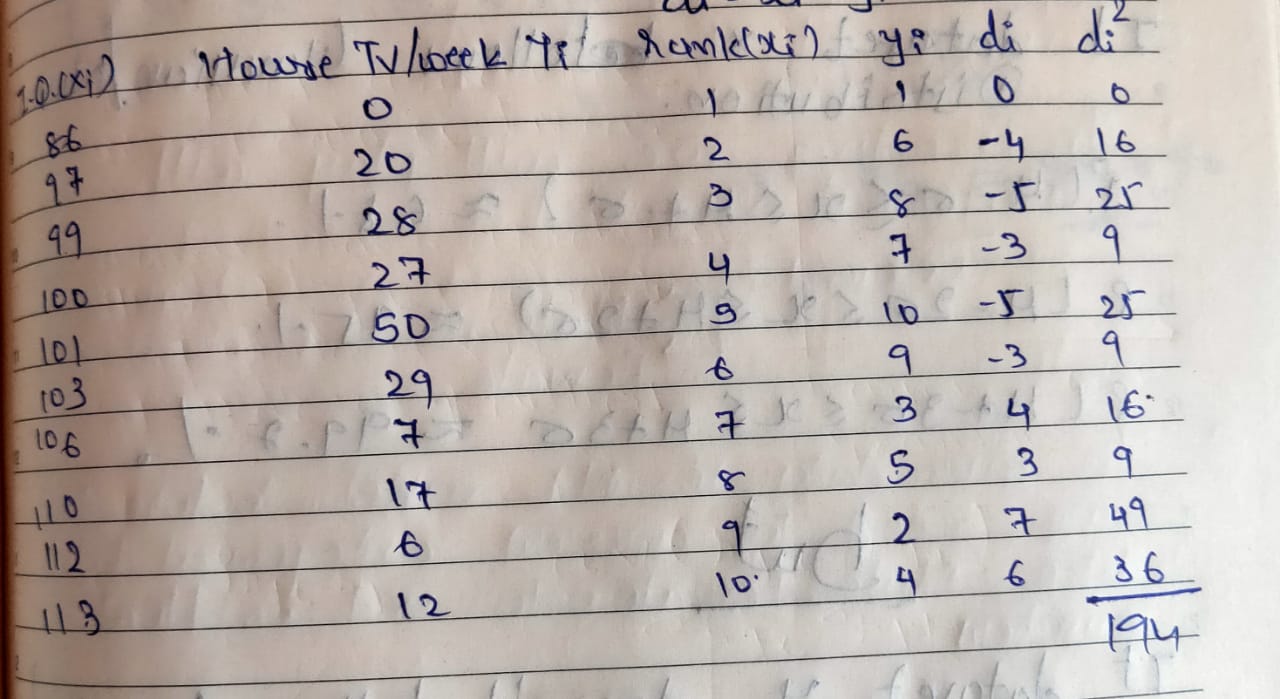 I.Q.(xi) Hourse TV/week Yi rank(xi) yi di di²
86 0 1 1 0 0
97 20 2 6 -4 16
99 28 3 8 -5 25
100 27 4 7 -3 9
101 50 5 10 -5 25
103 29 6 9 -3 9
106 7 7 3 4 16
110 17 8 5 3 9
112 6 9 2 7 49
113 12 10 4 6 36
194